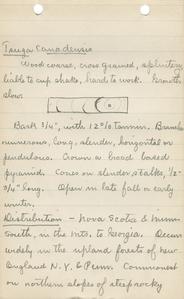 Tsuga Canadensis
Wood coarse, cross grained, splintery
liable to cup shake, hard to work. Growth
slow.
Bark 3/4", with 12% tannin. Branches
numerous, long, slender, horizontal or
pendulous. Crown a broad based
pyramid. Cones on slender stalks, 1/2"
3/4" long. Open in late fall or early
winter.
Distribution - Nova Scotia & Minn.
South, in the mts. to Georgia. Occurs
widely in the upland forests of new
England N.Y. & Penn. Commonest
on northern slopes of steep rocky